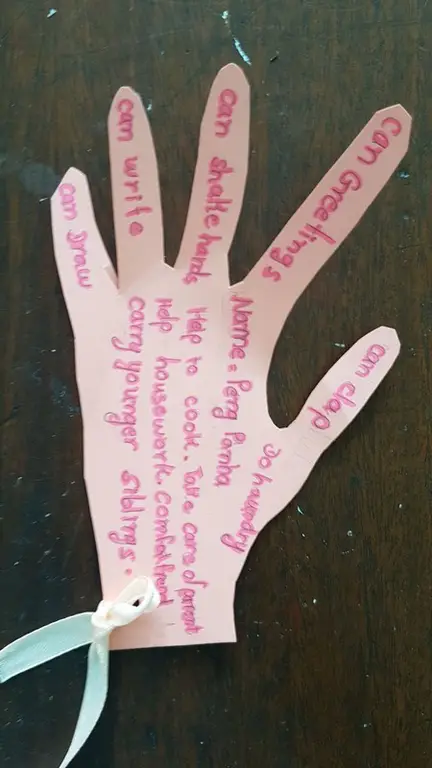 can Draw
can write
can shake hands
Can Greetings
can clap
Name = Peng Panha
Do haundry
Help to cook. Take care of parent
Help housework. Comfort friend
carry younger siblings.